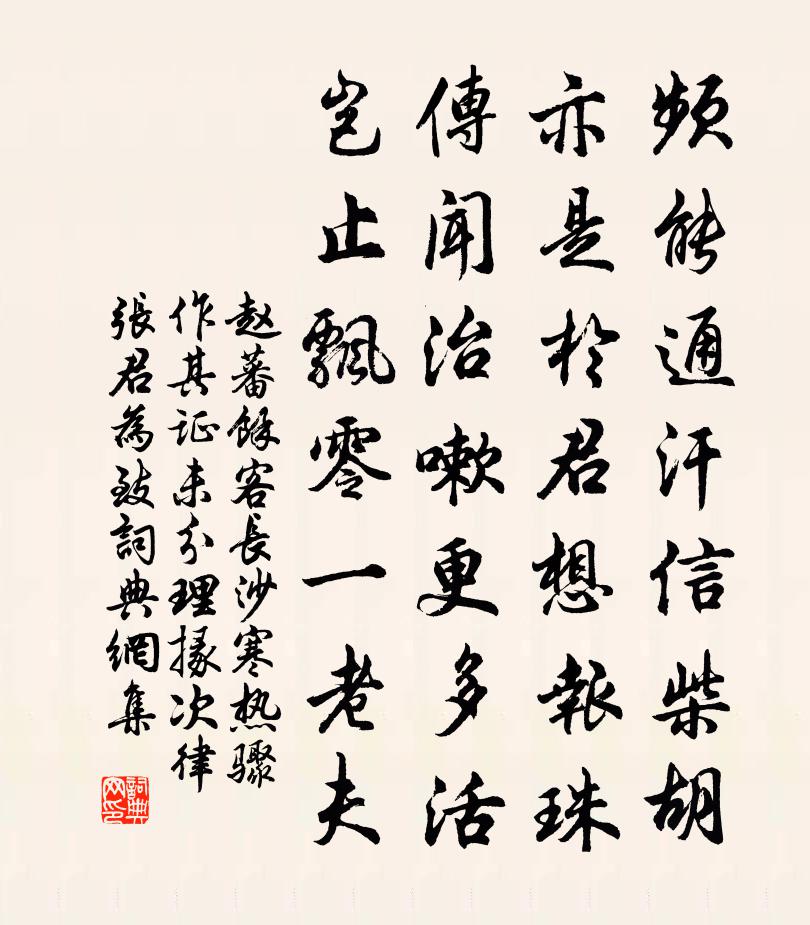 频能通汗信柴胡
亦是於君想報珠
傳聞治嗽更多活
豈止飄零一老夫
赵蕃餘客長沙寒热驟
作其证未分理掾次律
張君為致詞典網集
詞典
网印